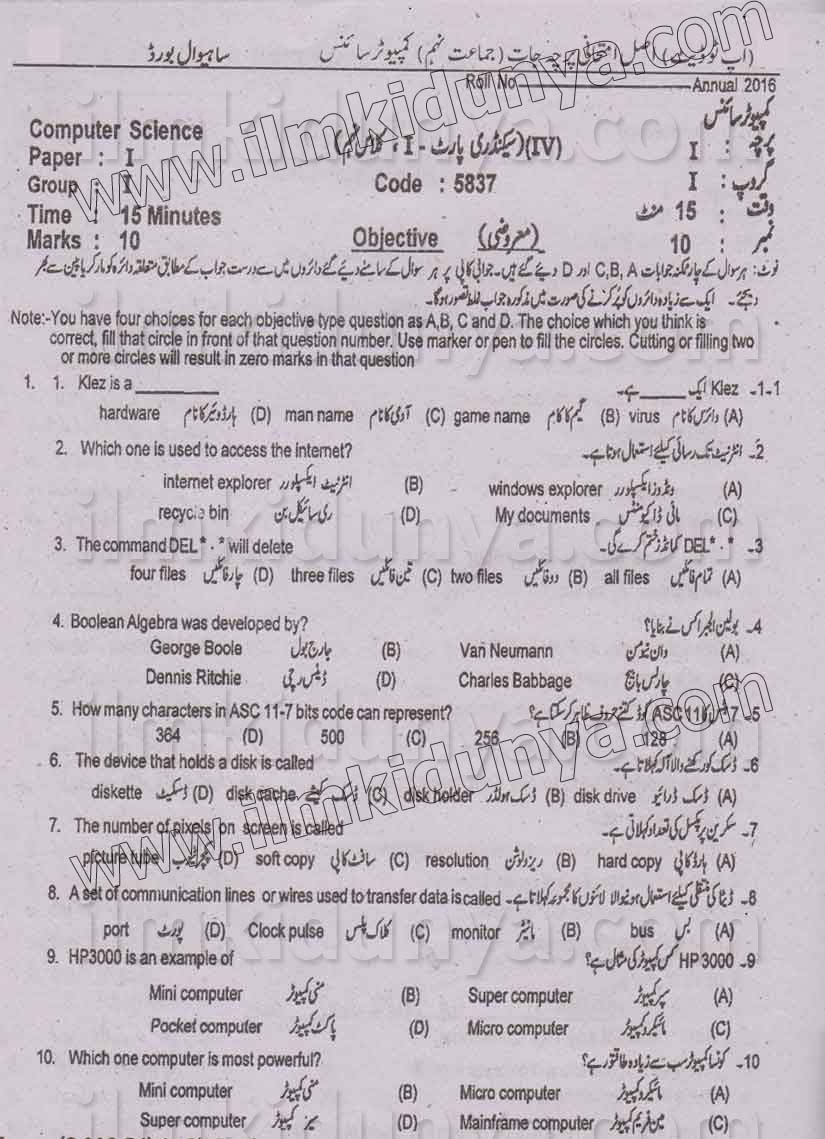 (اپ ٹو ڈیٹ) اصل امتحانی پرچہ جات (جماعت نہم) کمپیوٹر سائنس ساہیوال بورڈ
Roll No Annual 2016
Computer Science کمپیوٹر سائنس
Paper : I (IV)(سیکنڈری پارٹ - I ، کلاس نہم) پرچہ : I
Group : I Code : 5837 گروپ : I
Time : 15 Minutes وقت : 15 منٹ
Marks : 10 Objective (معروضی) نمبر : 10
نوٹ: ہر سوال کے چار ممکنہ جوابات C,B,A اور D دیئے گئے ہیں۔ جوابی کاپی پر ہر سوال کے سامنے دیئے گئے دائروں میں سے درست جواب کے مطابق متعلقہ دائرہ کو مارکر یا پین سے بھر
دیجئے۔ ایک سے زیادہ دائروں کو پُر کرنے کی صورت میں مذکورہ جواب غلط تصور ہوگا۔
Note:-You have four choices for each objective type question as A,B, C and D. The choice which you think is
correct, fill that circle in front of that question number. Use marker or pen to fill the circles. Cutting or filling two
or more circles will result in zero marks in that question
1. 1. Klez is a __________ 1-1- Klez ایک _____ ہے۔
hardware ہارڈویئر کا نام (D) man name آدمی کا نام (C) game name گیم کا نام (B) virus وائرس کا نام (A)
2. Which one is used to access the internet? 2۔ انٹرنیٹ تک رسائی کیلئے استعمال ہوتا ہے۔
internet explorer انٹرنیٹ ایکسپلورر (B) windows explorer ونڈوز ایکسپلورر (A)
recycle bin ری سائیکل بن (D) My documents مائی ڈاکیومنٹس (C)
3. The command DEL* · * will delete 3۔ DEL* · * کمانڈ ختم کرے گی۔
four files چار فائلیں (D) three files تین فائلیں (C) two files دو فائلیں (B) all files تمام فائلیں (A)
4. Boolean Algebra was developed by? 4۔ بولین الجبرا کس نے بنایا؟
George Boole جارج بول (B) Van Neumann وان نیومن (A)
Dennis Ritchie ڈینس رچی (D) Charles Babbage چارلس بابیج (C)
5. How many characters in ASC 11-7 bits code can represent? 5۔ 7 بٹس کا ASC 11 کوڈ کتنے حروف ظاہر کر سکتا ہے؟
364 (D) 500 (C) 256 (B) 128 (A)
6. The device that holds a disk is called 6۔ ڈسک کو رکھنے والا آلہ کہلاتا ہے۔
diskette ڈسکیٹ (D) disk cache ڈسک کیشے (C) disk holder ڈسک ہولڈر (B) disk drive ڈسک ڈرائیو (A)
7. The number of pixels on screen is called 7۔ سکرین پر پکسل کی تعداد کہلاتی ہے۔
picture tube پکچر ٹیوب (D) soft copy سافٹ کاپی (C) resolution ریزولوشن (B) hard copy ہارڈ کاپی (A)
8. A set of communication lines or wires used to transfer data is called 8۔ ڈیٹا کی منتقلی کیلئے استعمال ہونیوالا لائنوں کا مجموعہ کہلاتا ہے۔
port پورٹ (D) Clock pulse کلاک پلس (C) monitor مانیٹر (B) bus بس (A)
9. HP3000 is an example of 9۔ HP 3000 کس کمپیوٹر کی مثال ہے؟
Mini computer منی کمپیوٹر (B) Super computer سپر کمپیوٹر (A)
Pocket computer پاکٹ کمپیوٹر (D) Micro computer مائیکرو کمپیوٹر (C)
10. Which one computer is most powerful? 10۔ کونسا کمپیوٹر سب سے زیادہ طاقتور ہے؟
Mini computer منی کمپیوٹر (B) Micro computer مائیکرو کمپیوٹر (A)
Super computer سپر کمپیوٹر (D) Mainframe computer مین فریم کمپیوٹر (C)
www.ilmkidunya.com
www.ilmkidunya.com
ilmkidunya.com
ilmkidunya.com
ilmkidunya.com
ilmkidunya.com
ilmkidunya.com
ilmkidunya.com